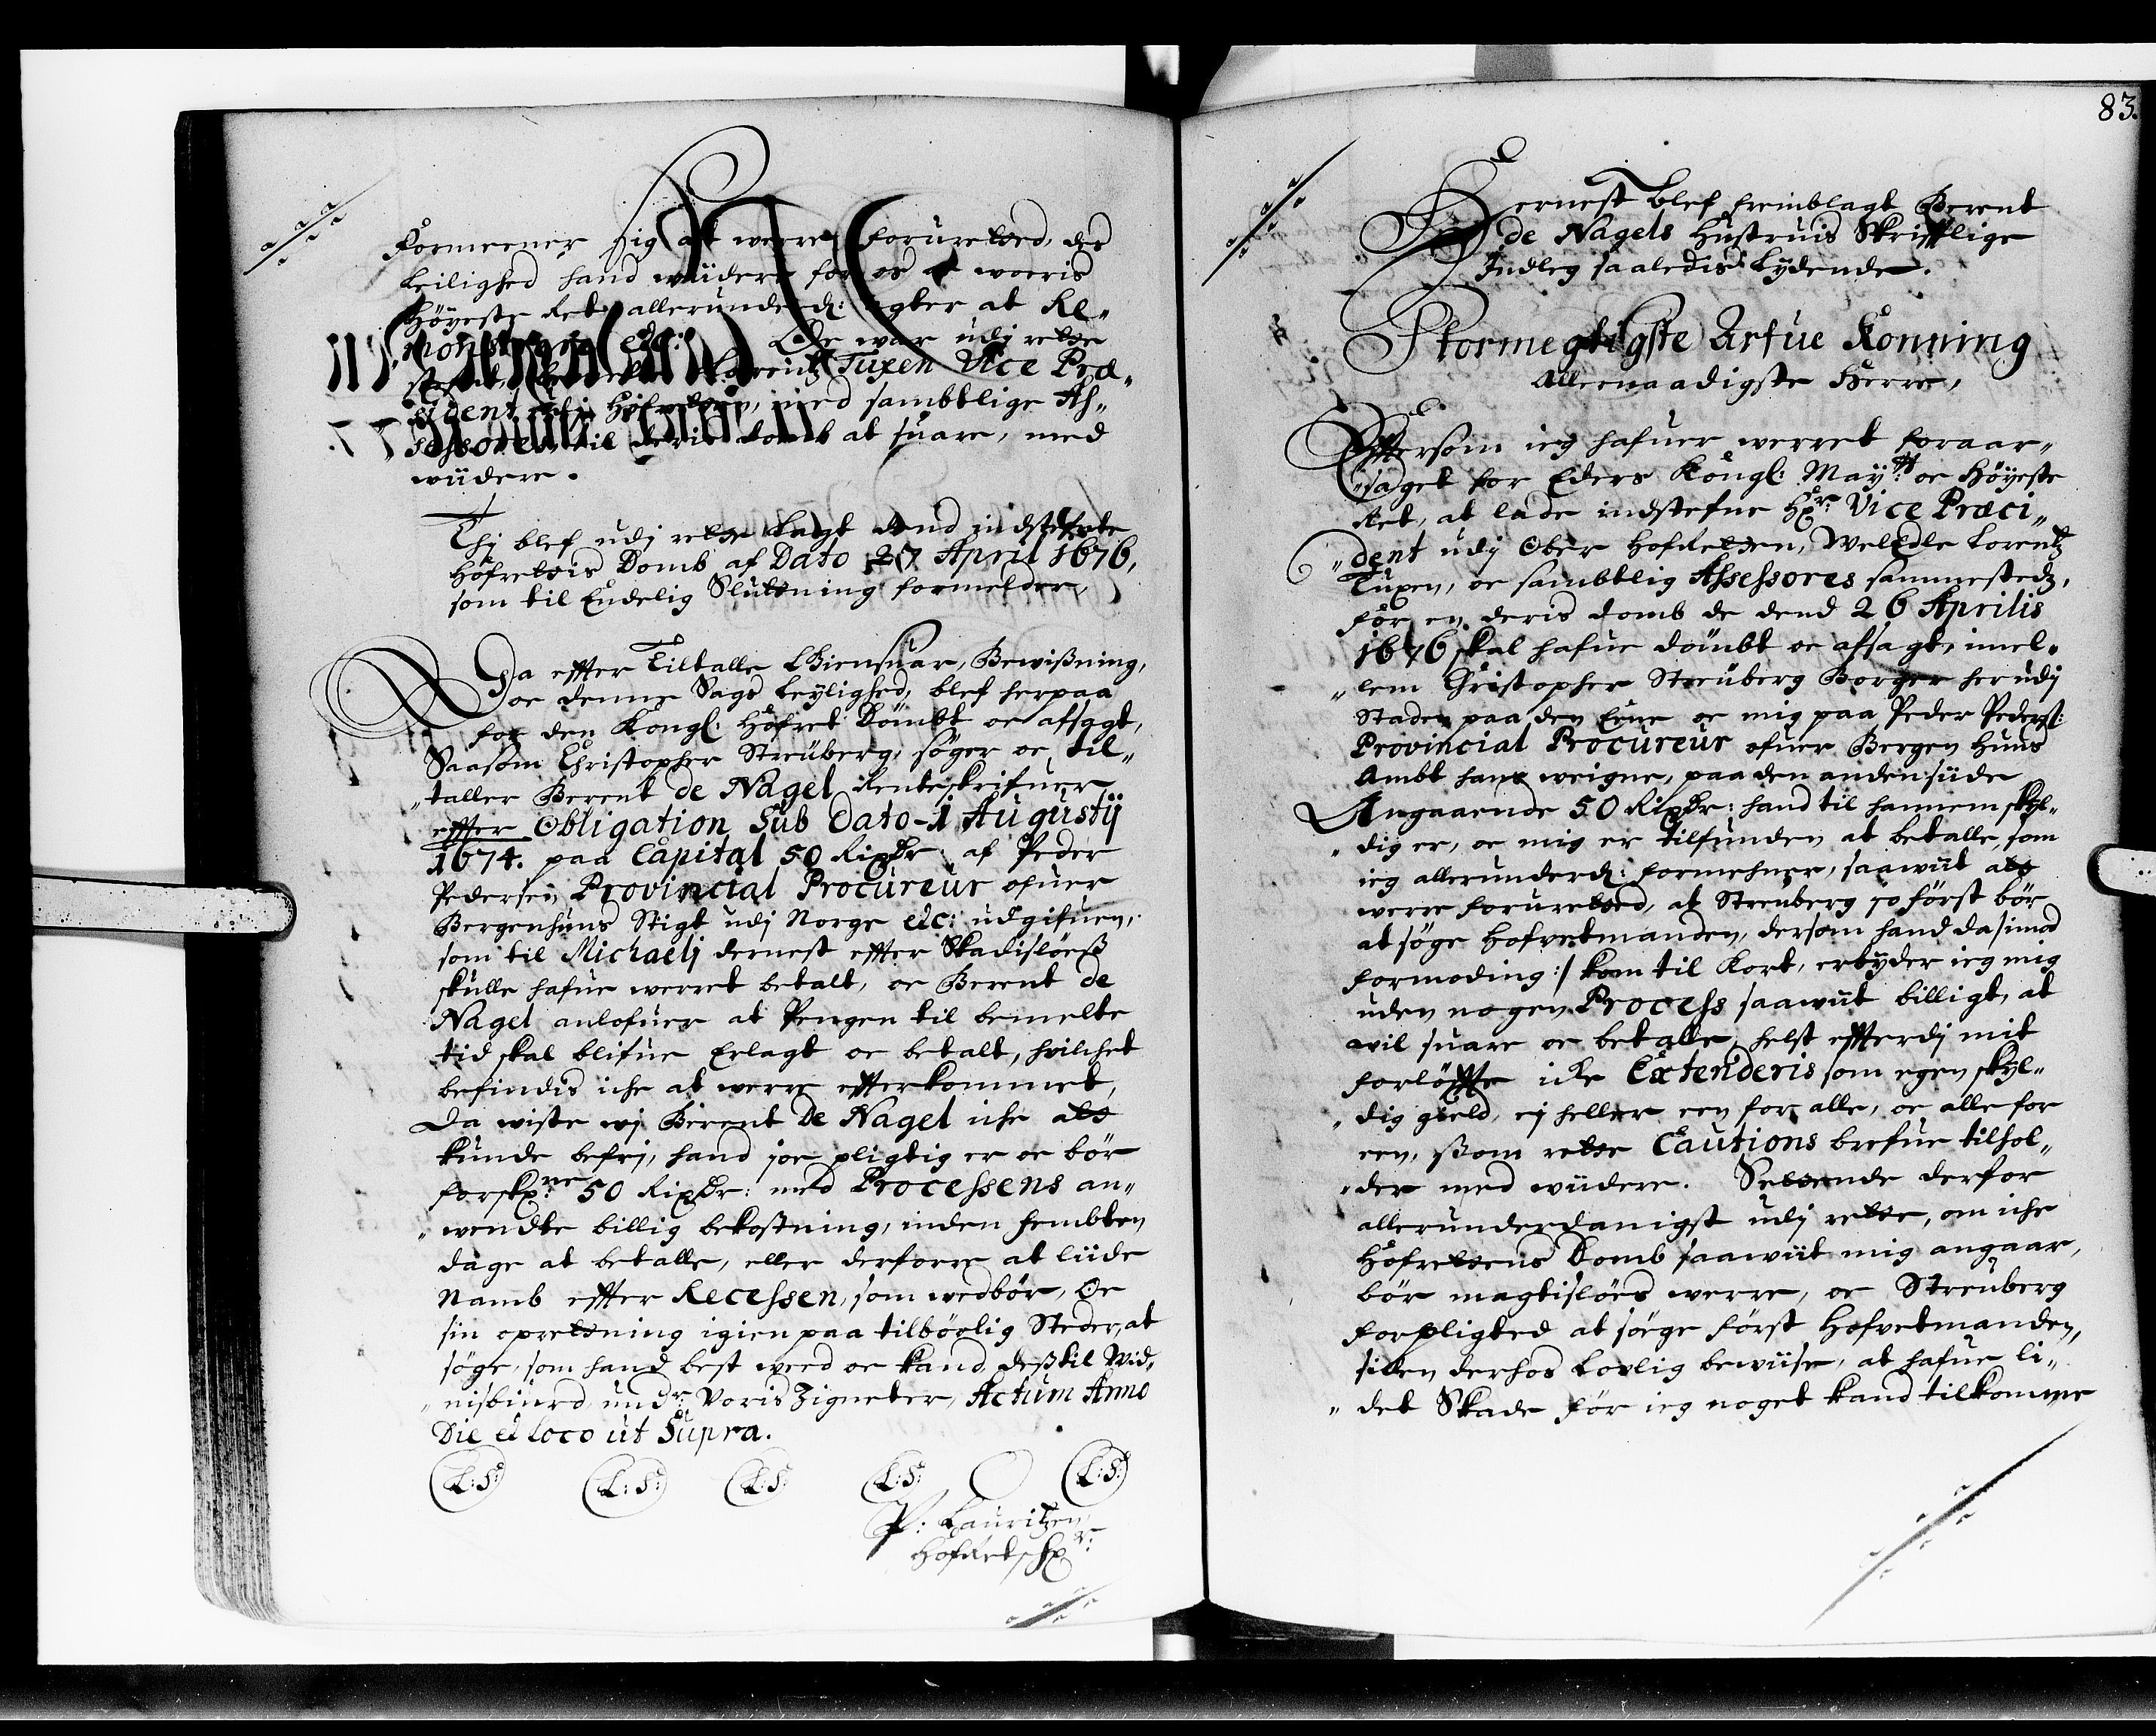 Formeener sig at werre foruretted, des
Leilighed hand widere for os og woeris
Høyeste Ret allerunderd: agter at Re„
monstrere etc: Oc war udj rette
Lorentz Tuxen Vice Præ„
sident udj Hofretten, med sambtlige As„
sessores, til deris domb at suare, med
widere.
Thj blef udj rette lagt dend indstefnte
Hofrettis Domb af Dato 27 April 1676,
som til Endelig Slutning formelder,
Da effter Tiltalle Giensuar, Bewißning,
oc denne Sags Leylighed, blef herpaa
for den Kongl: Hofret Dömbt oc afsagt,
Saasom Christopher Streüberg, søger oc til„
„taller Berent de Nagel Renteskrifuer
effter Obligation Sub Dato 1 Augustij
1674. paa Capital 50 Rixdr: af Peder
Pedersen Provincial Procureur ofuer
Bergenhuus Stigt udj Norge etc: udgifuen,
som til Michaelj dernest effter Skadisløeß
skulle hafue werret betalt, oc Berent de
Nagel anlofuer at Pengen til bemelte
tid skal blifue Erlagt oc betalt, huilchet
befindis iche at werre efterkommet,
Da wiste wj Berent De Nagel iche als
kunde befrj, hand joe pligtig er oc bør
forskr:ne 50 Rixdr: med Processens an„
„wendte billig bekostning, inden fembten
dage at betalle, eller derforre at liide
Namb effter Recessen, som wedbør, Oc
sin oprettning igien paa tilbörlig Steder, at
søge, som hand best weed oc kand, deß til Wid„
„nisbiurd, undr: Voris Zigneter, Actum Anno
Die et loco ut Supra.
(L:S:) (L:S:) (L:S: (L:S: (L:S:)
P: Lauritzen
HofRetsskr:
83.
Dernest blef fremblagt Berent
de Nagels Hustruis Skrifftlige
Indleg saaledis Lydende.
Stormegtigste Arfue Konning
Allernaadigste Herre,
Efftersom ieg hafuer werret foraar„
„saget for Eders Kongl: Mayts: oc Høyeste
Ret, at lade indstefne Hr: Vice Præci„
„dent udj Ober HofRetten, WelEdle Lorentz
Tuxen, oc sambtlig Assessores sammestedz,
for en deris domb de dend 26 Aprilis
1676 skal hafue dömbt oc afsagt, imel„
„lem Christopher Streüberg Borger her udj
Staden paa den Eene oc mig paa Peder Peders:
Provincial Procureur ofuer Bergen Huus
Ambt hans weigne, paa den anden siide
Angaaende 50 Rixdr: hand til hannem skyl„
„dig er, oc mig er tilfunden at betalle, som
ieg allerunderd: formehner, saawiit als
werre foruretted, at Streuberg jo först bör
at søge Hofvetmanden, dersom hand da /imod
formoding:/ kom til Kort, erbyder ieg mig
uden nogen Process saawiit billigt, at
wil suare oc betalle, helst effterdj mit
forløffte icke Extenderis som egen skyl„
„dig gield, ej heller een for alle, oc alle for
een, ßom rette Cautions brefue tilhol„
„der med widere. Settende derfor
allerunderdanigst udj rette, om iche
Hofrettens Domb saawiit mig angaar,
bör magtisløes werre, oc Streuberg
forpligted at söege först Hofvetmanden,
siden derhos Lovlig bewiise, at hafue li„
„det Skade för ieg noget kand tilkomme